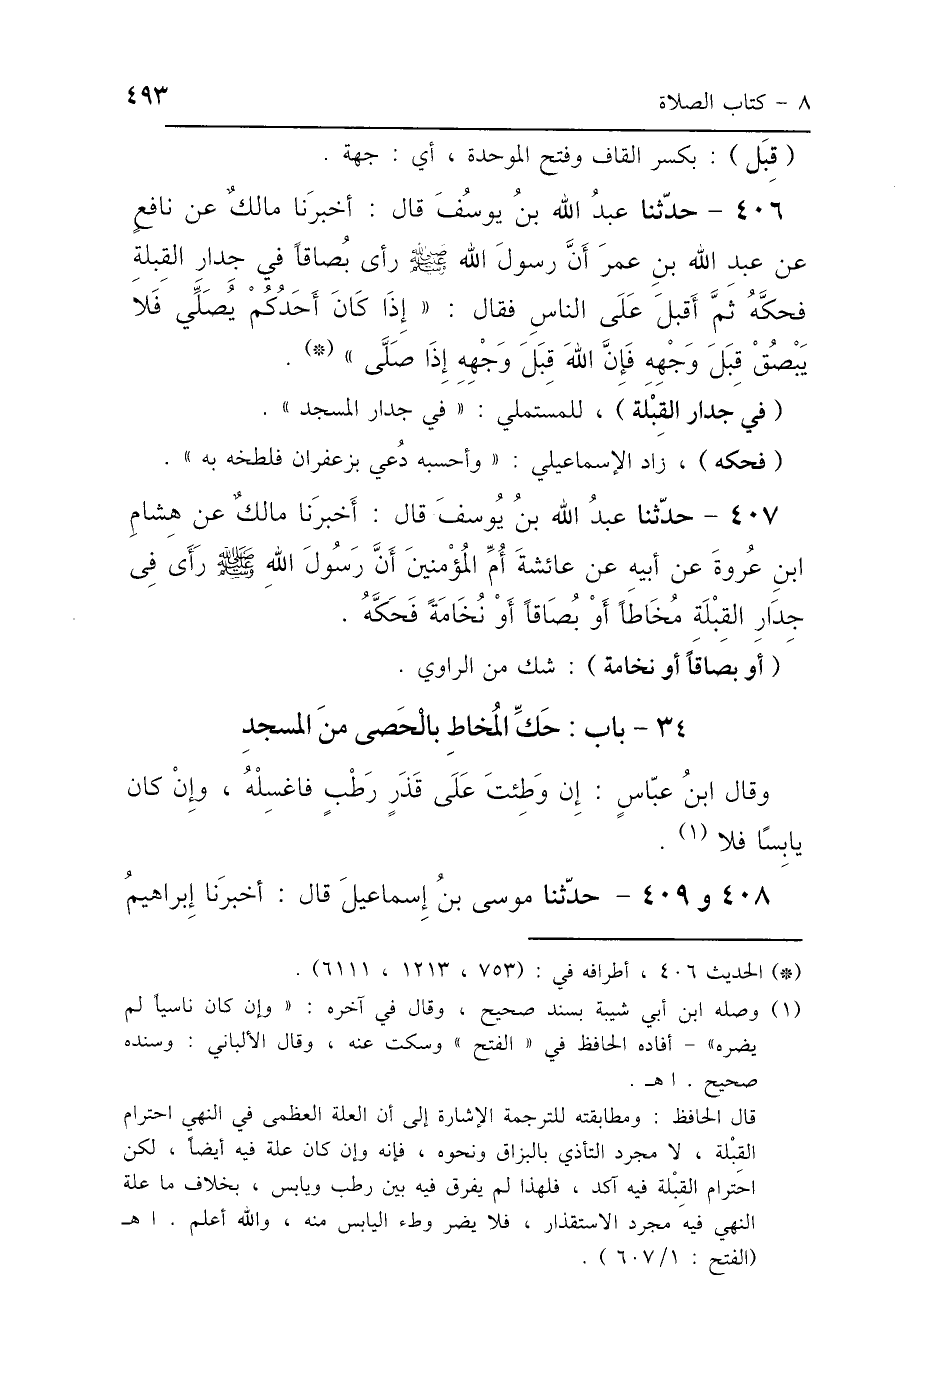 ٨ - كتاب الصلاة ٤٩٣
( قِبَل ) : بكسر القاف وفتح الموحدة ، أي : جهة .
٤٠٦ - حدّثنا عبدُ الله بنُ يوسُفَ قال : أخبرَنا مالكٌ عن نافعٍ
عن عبدِ الله بنِ عمرَ أنَّ رسولَ الله ﷺ رأى بُصاقاً في جدارِ القبلةِ
فحكَّهُ ثمَّ أقبلَ عَلَى الناسِ فقال : « إِذَا كَانَ أَحَدُكُمْ يُصَلِّي فَلا
يَبْصُقْ قِبَلَ وَجْهِهِ فَإِنَّ اللهَ قِبَلَ وَجْهِهِ إِذَا صَلَّى » (*) .
( في جدار القِبْلة ) ، للمستملي : « في جدار المسجد » .
( فحكه ) ، زاد الإسماعيلي : « وأحسبه دُعي بزعفران فلطخه به » .
٤٠٧ - حدّثنا عبدُ الله بنُ يُوسفَ قال : أخبرَنا مالكٌ عن هِشامِ
ابنِ عُروةَ عن أبيهِ عن عائشةَ أُمِّ الْمُؤْمنينَ أنَّ رَسُولَ اللهِ ﷺ رَأَى فِى
جِدَارِ القِبْلَةِ مُخَاطاً أَوْ بُصَاقاً أَوْ نُخَامَةً فَحَكَّهُ .
( أو بصاقاً أو نخامة ) : شك من الراوي .
٣٤ - باب : حَكِّ الْمُخاطِ بالْحَصى منَ المسجدِ
وقال ابنُ عبّاسٍ : إِن وَطِئتَ عَلَى قَذَرٍ رَطْبٍ فاغسِلْهُ ، وإِنْ كان
يابِسًا فلا (١) .
٤٠٨ و ٤٠٩ - حدّثنا موسى بنُ إِسماعيلَ قال : أخبرَنا إِبراهيمُ
(*) الحديث ٤٠٦ ، أطرافه في : (٧٥٣ ، ١٢١٣ ، ٦١١١) .
(١) وصله ابن أبي شيبة بسند صحيح ، وقال في آخره : « وإن كان ناسياً لم
يضره» - أفاده الحافظ في « الفتح » وسكت عنه ، وقال الألباني : وسنده
صحيح . ا هـ .
قال الحافظ : ومطابقته للترجمة الإشارة إلى أن العلة العظمى في النهي احترام
القِبْلة ، لا مجرد التأذي بالبزاق ونحوه ، فإنه وإن كان علة فيه أيضاً ، لكن
احترام القِبْلة فيه آكد ، فلهذا لم يفرق فيه بين رطب ويابس ، بخلاف ما علة
النهي فيه مجرد الاستقذار ، فلا يضر وطء اليابس منه ، والله أعلم . ا هـ
(الفتح : ٦٠٧/١ ) .